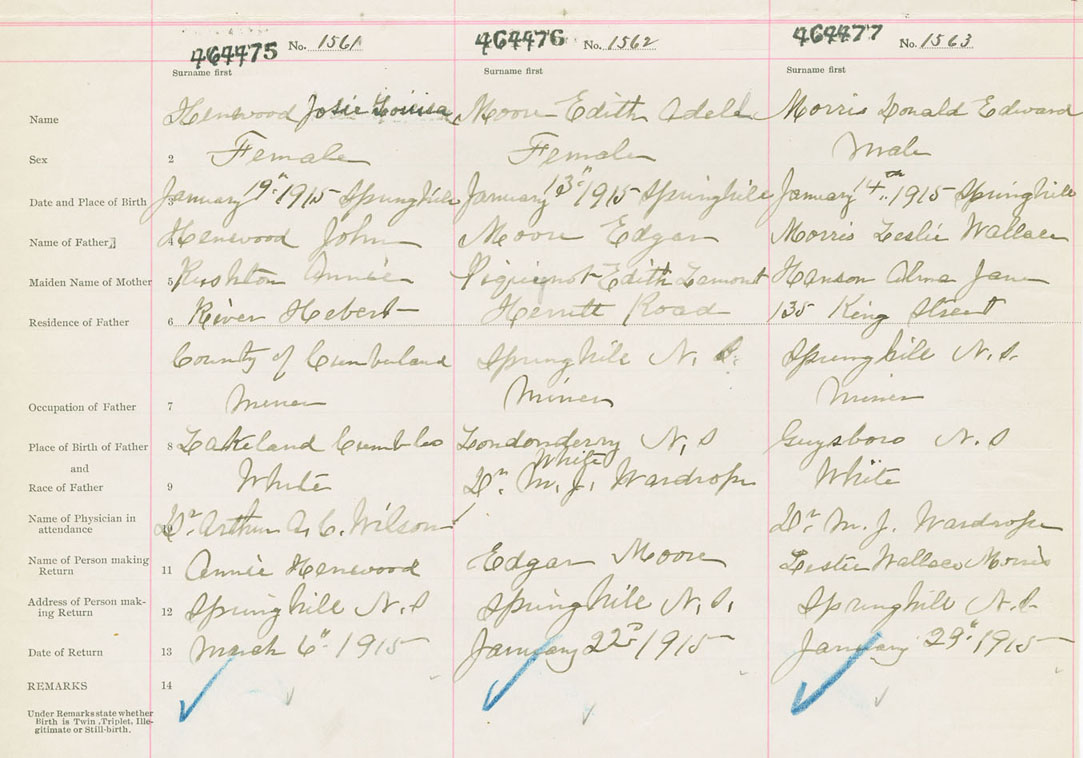 464475 No. 1561 464476 No. 1562 464477 No. 1563
Surname first Surname first Surname first
Name Henswood Josie Louisa Moore Edith Adell Morris Donald Edward
Sex 2 Female Female Male
Date and Place of Birth 3 January 19" 1915 Springhill January 13" 1915 Springhill January 14th 1915 Springhill
Name of Father 4 Henswood John Moore Edgar Morris Leslie Wallace
Maiden Name of Mother 5 Rushton Annie Piquignot Edith Lamont Henson Alma Jane
Residence of Father 6 River Hebert Herritt Road 135 King Street
County of Cumberland Springhill N. S. Springhill N. S.
Occupation of Father 7 Miner Miner Miner
Place of Birth of Father 8 Lakeland Cumb Co Londonderry N, S Guysboro N. S
and White
Race of Father 9 White Dr. M. J. Wardrope White
Name of Physician in
attendance 10 Dr. Arthur A. C. Wilson Dr. M. J. Wardrope
Name of Person making
Return 11 Annie Henswood Edgar Moore Leslie Wallace Morris
Address of Person mak-
ing Return 12 Springhill N. S Springhill N. S. Springhill N. S.
Date of Return 13 March 6" 1915 January 22nd 1915 January 29" 1915
REMARKS 14
Under Remarks state whether
Birth is Twin, Triplet, Ille-
gitimate or Still-birth.